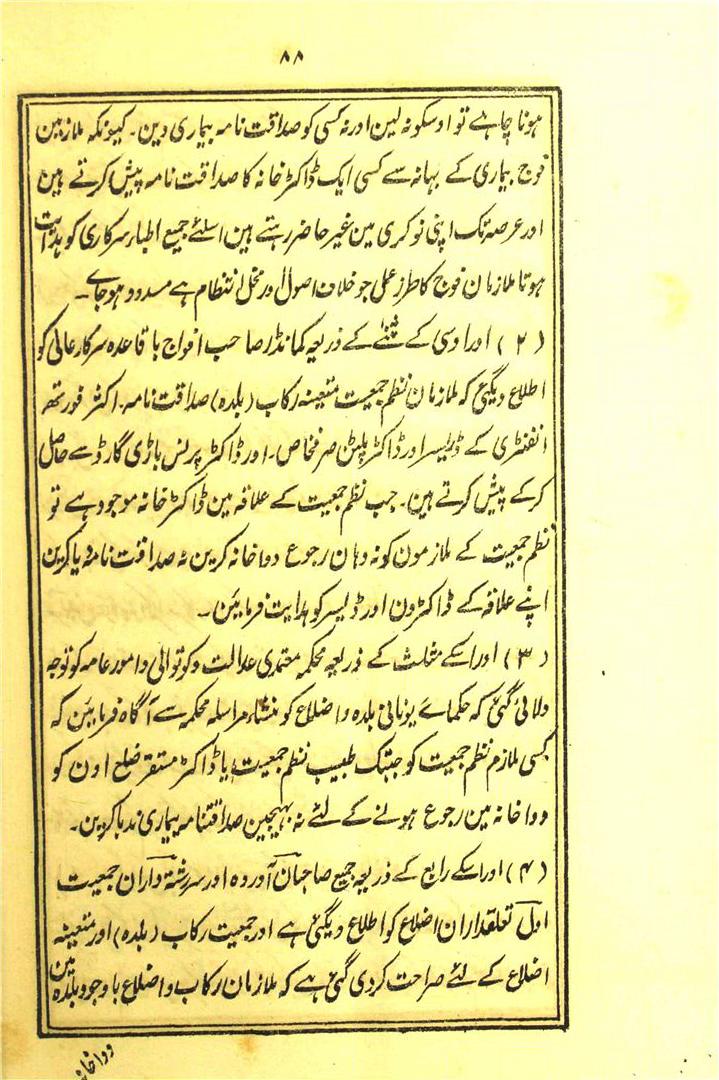 ۸۸
ہونا چاہے تو اوسکو نہ لین اور نہ کسی کو صداقت نامہ بیماری دین ۔ کیونکہ ملازمین
فوج بیماری کے بہانہ سے کسی ایک ڈاکٹر خانہ کا صداقت نامہ پیش کرتے ہین
اور عرصہ تک اپنی نوکری مین غیر حاضر رہتے ہین اسلئے جمیع اطبار سرکاری کو ہدایت
ہوتا ملازمان فوج کا طرز عمل جو خلاف اصول اور مخل انتظام ہے مسدود ہوجاے ۔
(۲) اور اوسی کے مثنےٰ کے ذریعہ کمانڈر صاحب افواج باقاعدہ سرکار عالی کو
اطلاع دیگئی کہ ملازمان نظم جمعیت متعینہ رکاب (بلدہ) صداقت نامہ ۔ اکثر فورتھ
انفنٹری کے ڈریسر اور ڈاکٹر پلٹن صرفخاص ۔ اور ڈاکٹر پرنس باڑی گارڈ سے حاصل
کر کے پیش کرتے ہین ۔ جب نظم جمعیت کے علاقہ مین ڈاکٹر خانہ موجود ہے تو
نظم جمعیت کے ملازمون کو نہ وہان رجوع دواخانہ کرین نہ صداقت نامہ دیا کرین
اپنے علاقہ کے ڈاکٹرون اور ڈریسر کو ہدایت فرمایئن ۔
(۳) اور اسکے مثلث کے ذریعہ محکمہ معتمدی عدالت و کوتوالی و امور عامہ کو توجہ
دلائی گئی کہ حکماے یونانی بلدہ و اضلاع کو منشاء مراسلہ محکمہ سے آگاہ فرمایئن کہ
کسی ملازم نظم جمعیت کو جبتک طبیب نظم جمعیت یا ڈاکٹر مستقر ضلع اون کو
دواخانہ مین رجوع ہونے کے لئے نہ بھیجین صداقتنامہ بیماری ندیا کرین ۔
(۴) اور اسکے رابع کے ذریعہ جمیع صاحبان آوردہ اور سررشتہ داران جمعیت
اول تعلقداران اضلاع کو اطلاع دیگئی ہے اور جمعیت رکاب (بلدہ) اور متعینہ
اضلاع کے لئے صراحت کردی گئی ہے کہ ملازمان رکاب و اضلاع باوجود بلدہ مین
دواخانہ